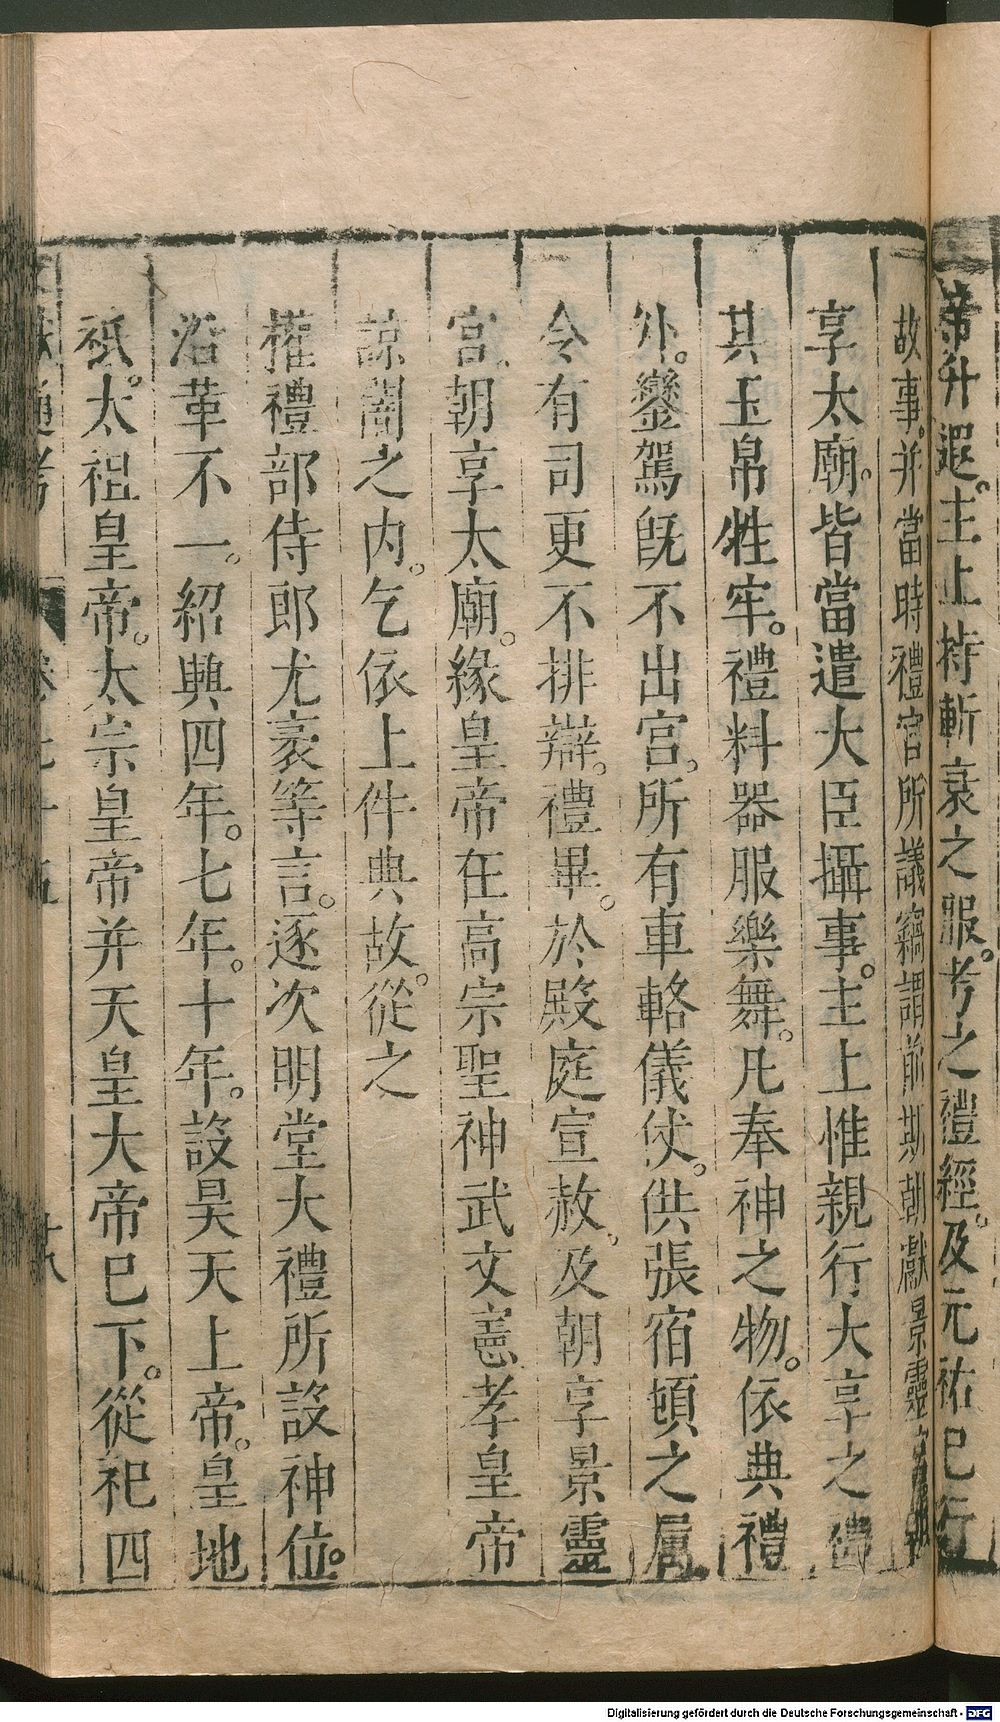 帝升遐。主上持斬衰之服。考之禮經。及元祐已行
故事。并當時禮官所議竊謂前期朝獻景靈宮
享太廟。皆當遣大臣攝事。主上惟親行大享之禮
其玉帛牲牢。禮料器服樂舞。凡奉神之物。依典禮
外。鑾駕既不出宮。所有車輅儀仗。供張宿頓之屬
令有司更不排辦。禮畢。於殿庭宣赦。及朝享景靈
宮。朝享太廟。緣皇帝在高宗聖神武文憲孝皇帝
諒闇之内。乞依上件典故。從之
權禮部侍郎尤袤等言。逐次明堂大禮所設神位。
沿革不一。紹興四年。七年。十年。設昊天上帝。皇地
祇。太祖皇帝。太宗皇帝并天皇大帝已下。從祀四
獻通考 卷七十五 十八
Digitalisierung gefördert durch die Deutsche Forschungsgemeinschaft - DFG